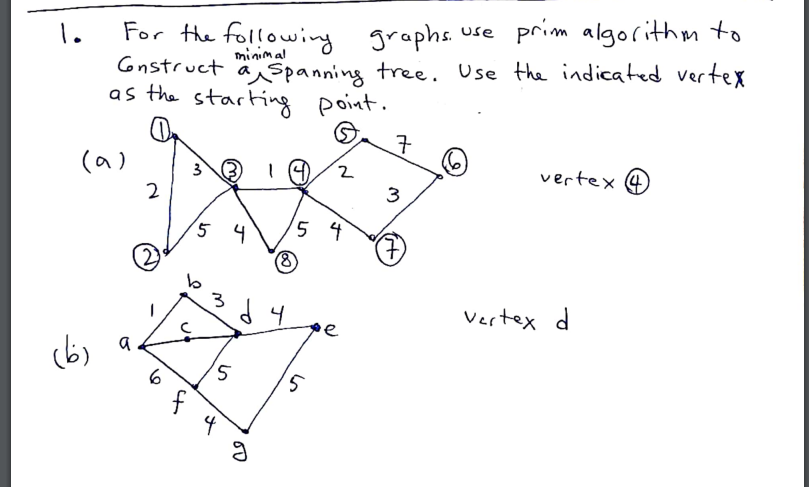 1. For the following graphs. use prim algorithm to
minimal
Construct a ^ Spanning tree. Use the indicated vertex
as the starting point.
(a)
1 5 7 6
3 3 1 4 2 vertex 4
2 3
5 4 5 4
2 8 7
b 3 d 4 vertex d
1 c e
(b) a
6 5 5
f 4
g